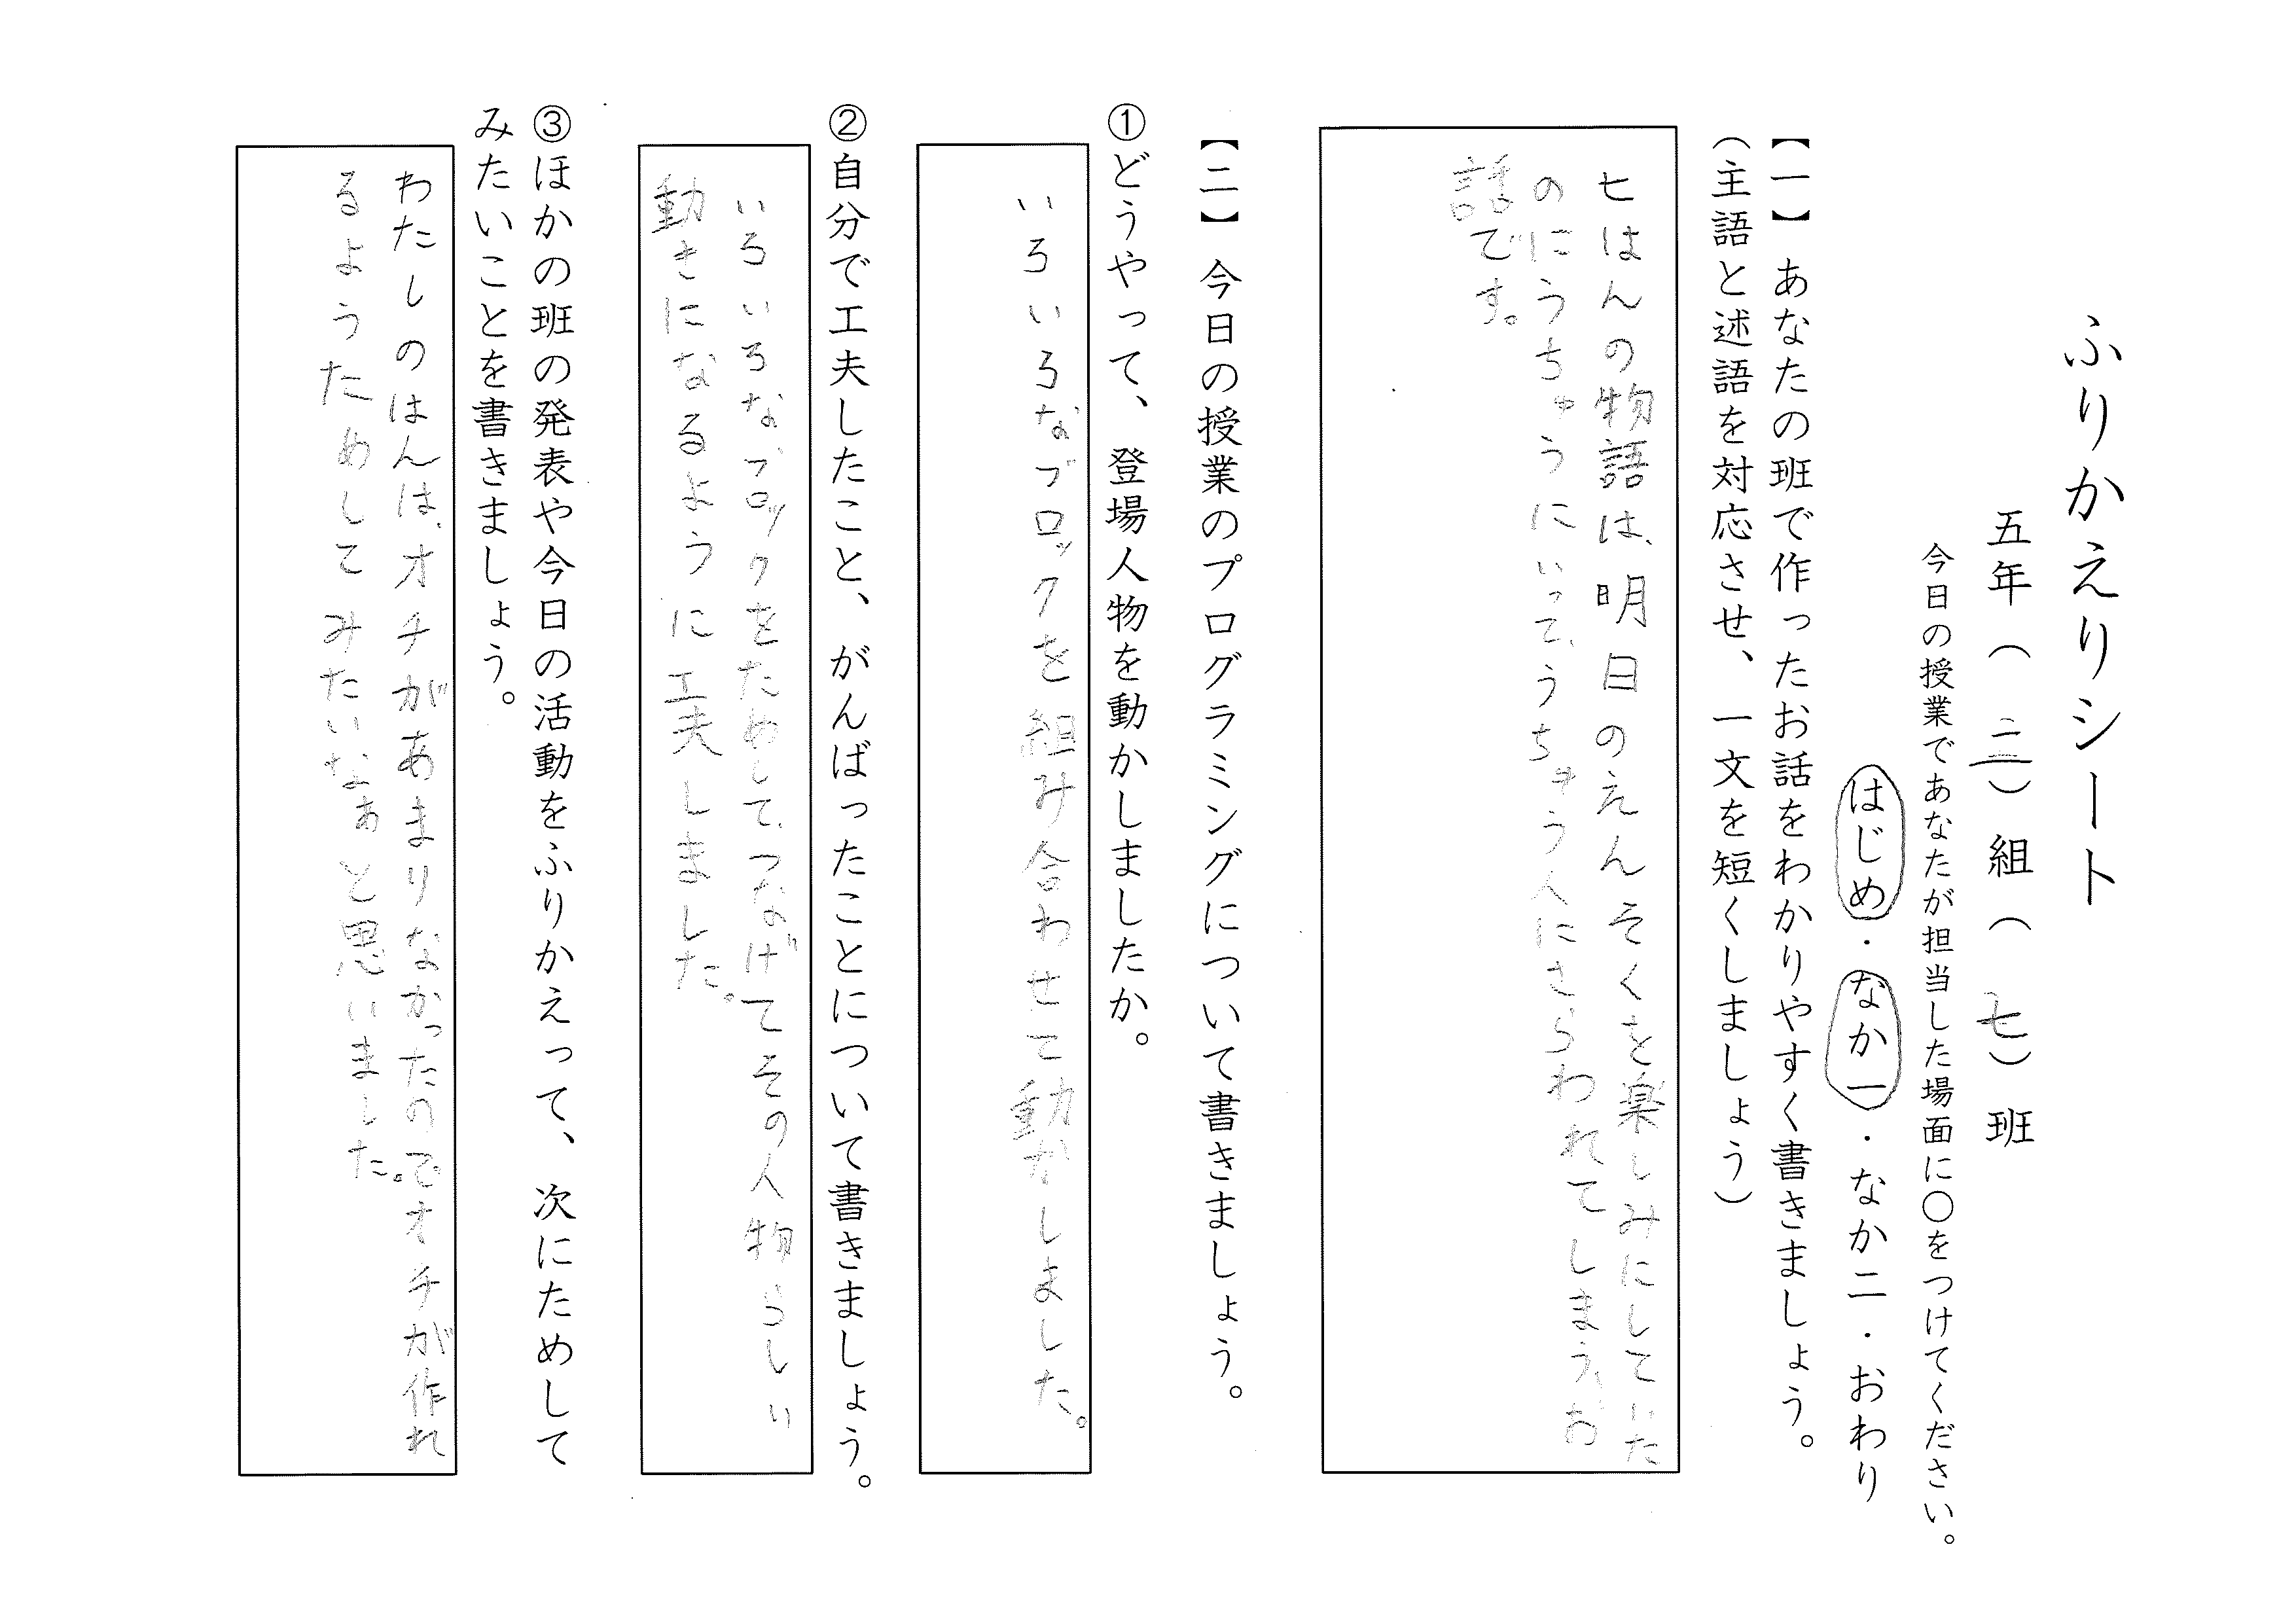 ふりかえりシート
五年(二)組(七)班
今日の授業であなたが担当した場面に○をつけてください。
はじめ・なか一・なか二・おわり
【一】あなたの班で作ったお話をわかりやすく書きましょう。
(主語と述語を対応させ、一文を短くしましょう)
七はんの物語は、明日のえんそくを楽しみにしていた
のにうちゅうにいって、うちゅう人にさらわれてしまう、お
話です。
【二】今日の授業のプログラミングについて書きましょう。
①どうやって、登場人物を動かしましたか。
いろいろなブロックを組み合わせて動かしました。
②自分で工夫したこと、がんばったことについて書きましょう。
いろいろな、ブロックをためして、つなげてその人物らしい
動きになるように工夫しました。
③ほかの班の発表や今日の活動をふりかえって、次にためして
みたいことを書きましょう。
わたしのはんは、オチがあまりなかったのでオチが作れ
るようためしてみたいなぁと思いました。